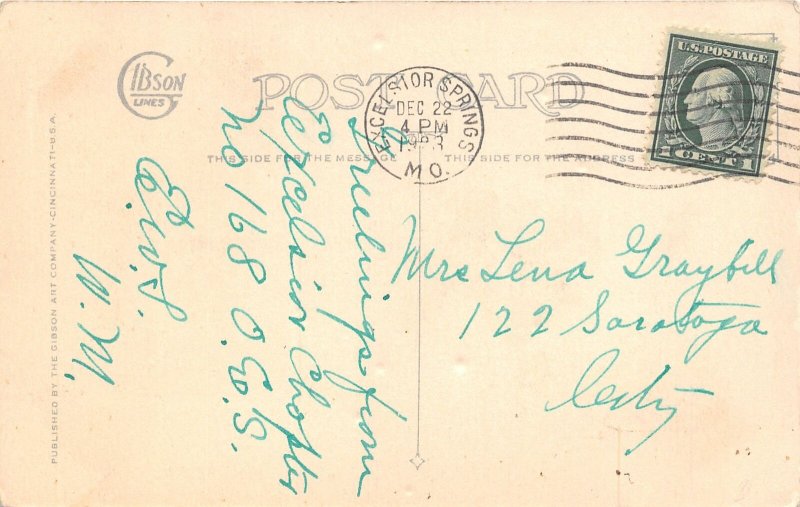 GIBSON
LINES
POST CARD
THIS SIDE FOR THE MESSAGE
THIS SIDE FOR THE ADDRESS
PUBLISHED BY THE GIBSON ART COMPANY-CINCINNATI-U.S.A.
EXCELSIOR SPRINGS
DEC 22
4 PM
MO.
U.S. POSTAGE
Greetings from
Excelsior Chapter
No 168 O.E.S.
W.M.
Mrs Lena Graybill
122 Saratoga
City